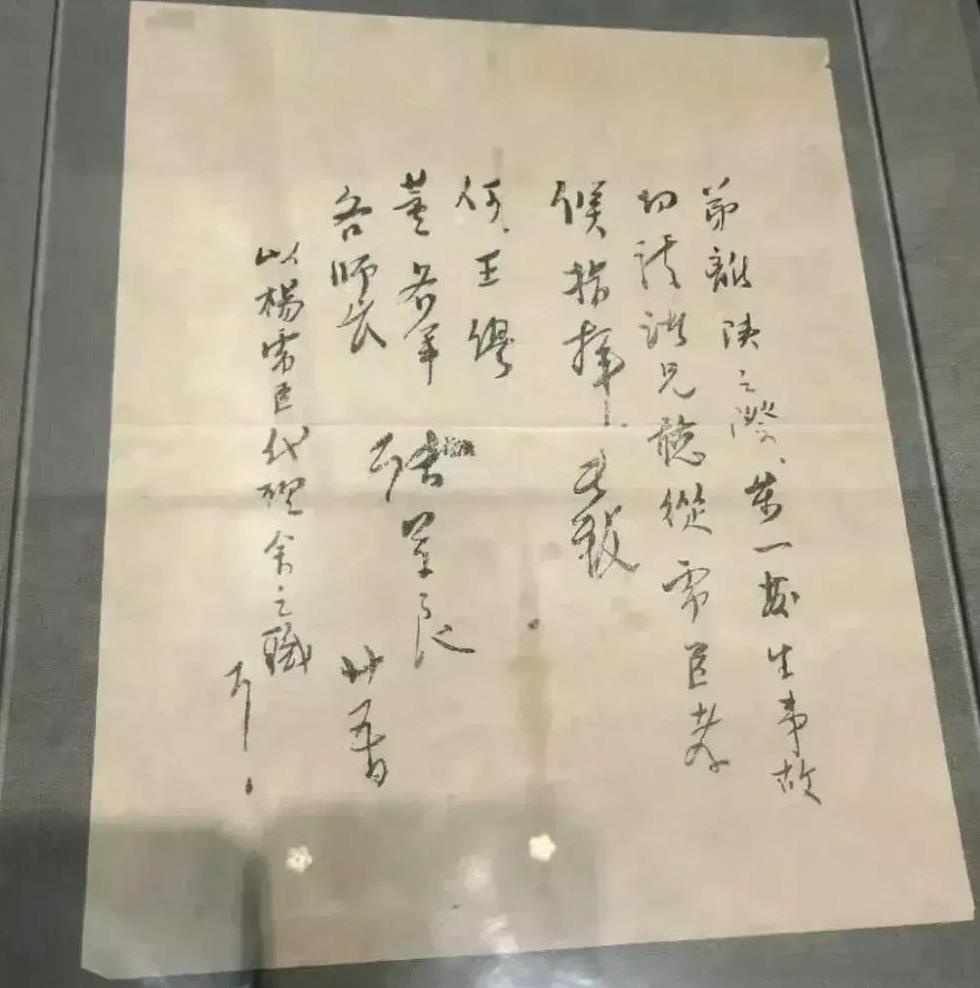 弟離陝之際、萬一發生事故
切請諸兄聽從虎臣孝
候指揮、此致
何、王繆
董各軍
各師長
張學良
廿五日
以楊虎臣代理余之職